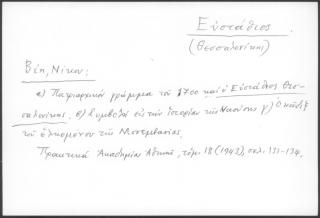 Εὐστάθιος
(Θεσσαλονίκης)
Βέη, Νίκου:
α) Πατριαρχικὸν γράμμα τοῦ 1700 καὶ ὁ Εὐστάθιος Θεσ-
σαλονίκης. β) Συμβολὴ εἰς τὴν ἱστορίαν τῆς Ναούσης γ) Ὁ κῶδιξ
τοῦ ἑλκομένου τῆς Μονεμβασίας.
Πρακτικὰ Ἀκαδημία Ἀθηνῶν, τόμ. 18 (1943), σελ. 131-134.